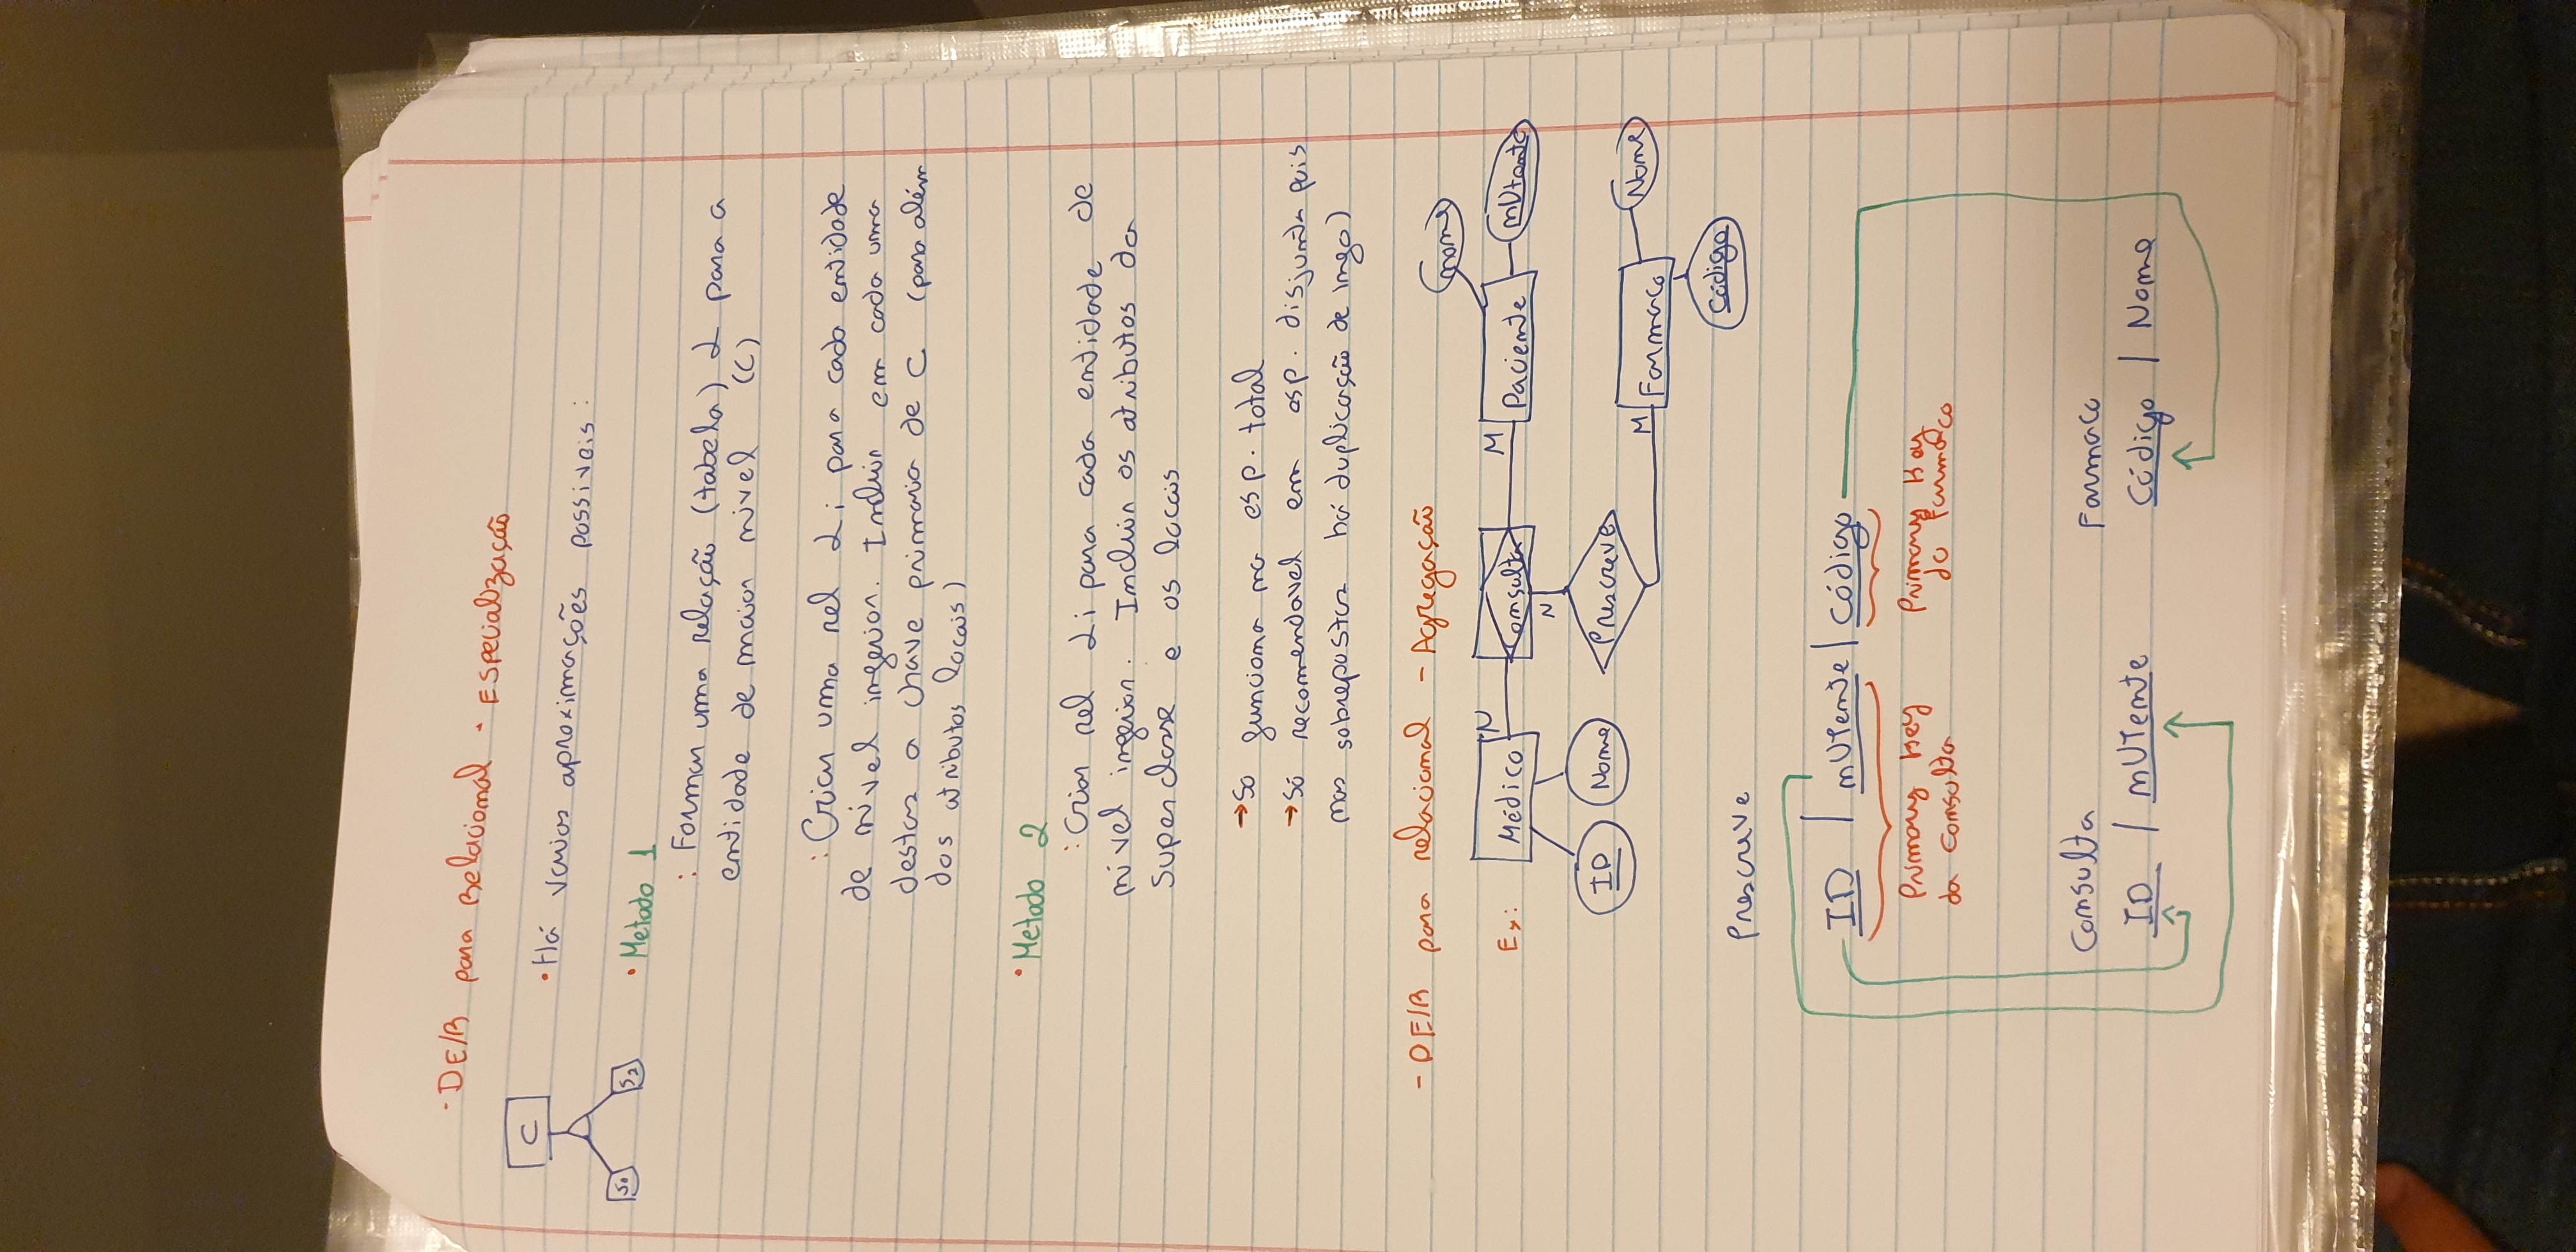 - DE/R para Relacional - Especialização
C
S1
S2
• Há varias aproximações possiveis :
• Metodo 1
: Formar uma relação (tabela) L para a
entidade de maior nivel (C)
: Criar uma rel Li para cada entidade
de nivel inferior. Incluir em cada uma
destas a chave primaria de C (para além
dos atributos locais)
• Metodo 2
: Criar rel Li para cada entidade de
nivel inferior. Incluir os atributos da
Superclasse e os locais
→ So funciona na esp. total
→ Só recomendavel em esp. disjunta pois
nas sobrepostas há duplicação de info)
- DE/R para relacional - Agregação
Ex:
Médico
N
Consulta
M
Paciente
nome
nUtente
ID
Nome
N
Prescreve
M
Farmaco
Nome
Código
Prescreve
ID | nUTente | Código
Primary Key
da Consulta
Primary Key
do Farmaco
Consulta
ID | nUTente
Farmaco
Código | Nome